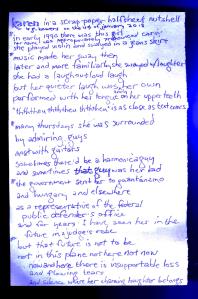 karen in a scrap-paper halfsheet nutshell
in early 1990 there was this girl
she played violin and swayed in a jeans skirt
music made her sway then
later and more familiarly, she swayed w/laughter
she had a laughoutloud laugh
but her quieter laugh was her own
performed with her tongue on her upper teeth
is as close as text comes
many thursdays she was surrounded
by admiring guys
most with guitars
sometimes there'd be a harmonica guy
and sometimes that guy was her dad
the government sent her to guantánamo
and hungary and elsewhere
as a representative of the federal
public defender's office
and for years i have seen her in the
future in a judge's robe
but that future is not to be
not in this plane not here not now
now and here there is unsupportable loss
and flowing tears
and silence where her charming laughter belongs